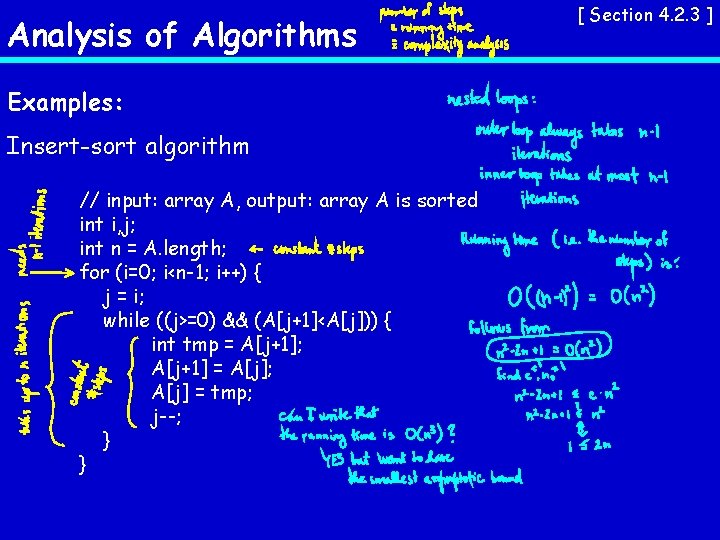 Analysis of Algorithms
number of steps
= running time
= complexity analysis
[ Section 4.2.3 ]
Examples:
Insert-sort algorithm
// input: array A, output: array A is sorted
int i,j;
int n = A.length;
← constant # steps
for (i=0; i<n-1; i++) {
j = i;
while ((j>=0) && (A[j+1]<A[j])) {
int tmp = A[j+1];
A[j+1] = A[j];
A[j] = tmp;
j--;
}
}
needs
n-1 iterations
takes up to n iterations
constant
# steps
nested loops:
outer loop always takes n-1
iterations
inner loop takes at most n-1
iterations
Running time (i.e. the number of
steps) is:
O((n-1)²) = O(n²)
follows from
n²-2n+1 = O(n²)
find c, n₀
n²-2n+1 ≤ c·n²
n²-2n+1 ≤ n²
1 ≤ 2n
can I write that
the running time is O(n³)?
YES but want to have
the smallest asymptotic bound